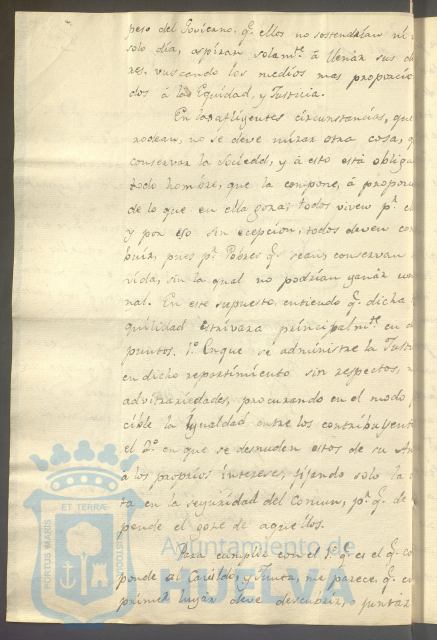 peso del Govierno. q.e ellos no sostendrian ni un
solo dia, aspiran solam.te á llenar sus de
res, vuscando los medios mas proporcio
dos á la Equidad, y Justicia.
En las afligentes circunstancias, que
rodean, no se deve mirar otra cosa, q
conservar la Sociedd, y á esto está obliga
todo hombre, que la compone, á propor
de lo que en ella goza; todos viven p.r e
y por eso sin ecepcion, todos deven con
buir, pues p.r Pobres q.e sean, conservan
vida, sin la qual no podrian ganár
nal. En este supuesto, entiendo q.e dicha
quilidad estrivará principalm.te en d
puntos. 1.º Enque se administre la Just
en dicho repartimiento sin respectos,
advitrariedades, procurando en el modo
cible la igualdad entre los contribuyent
el 2.º en que se desnuden estos de su Am
á los proprios intereses, fijando solo la
ta en la seguridad del Comun, p.r q.e de
pende el de aquellos.
Para cumplir con el 1.º q.e es el q.e co
ponde al Cavildo, y Junta, me parece, q.e en
primer lugár deve descubrir, y
PORTUS MARIS ET TERRAE CUSTODIA
Ayuntamiento de
HUELVA